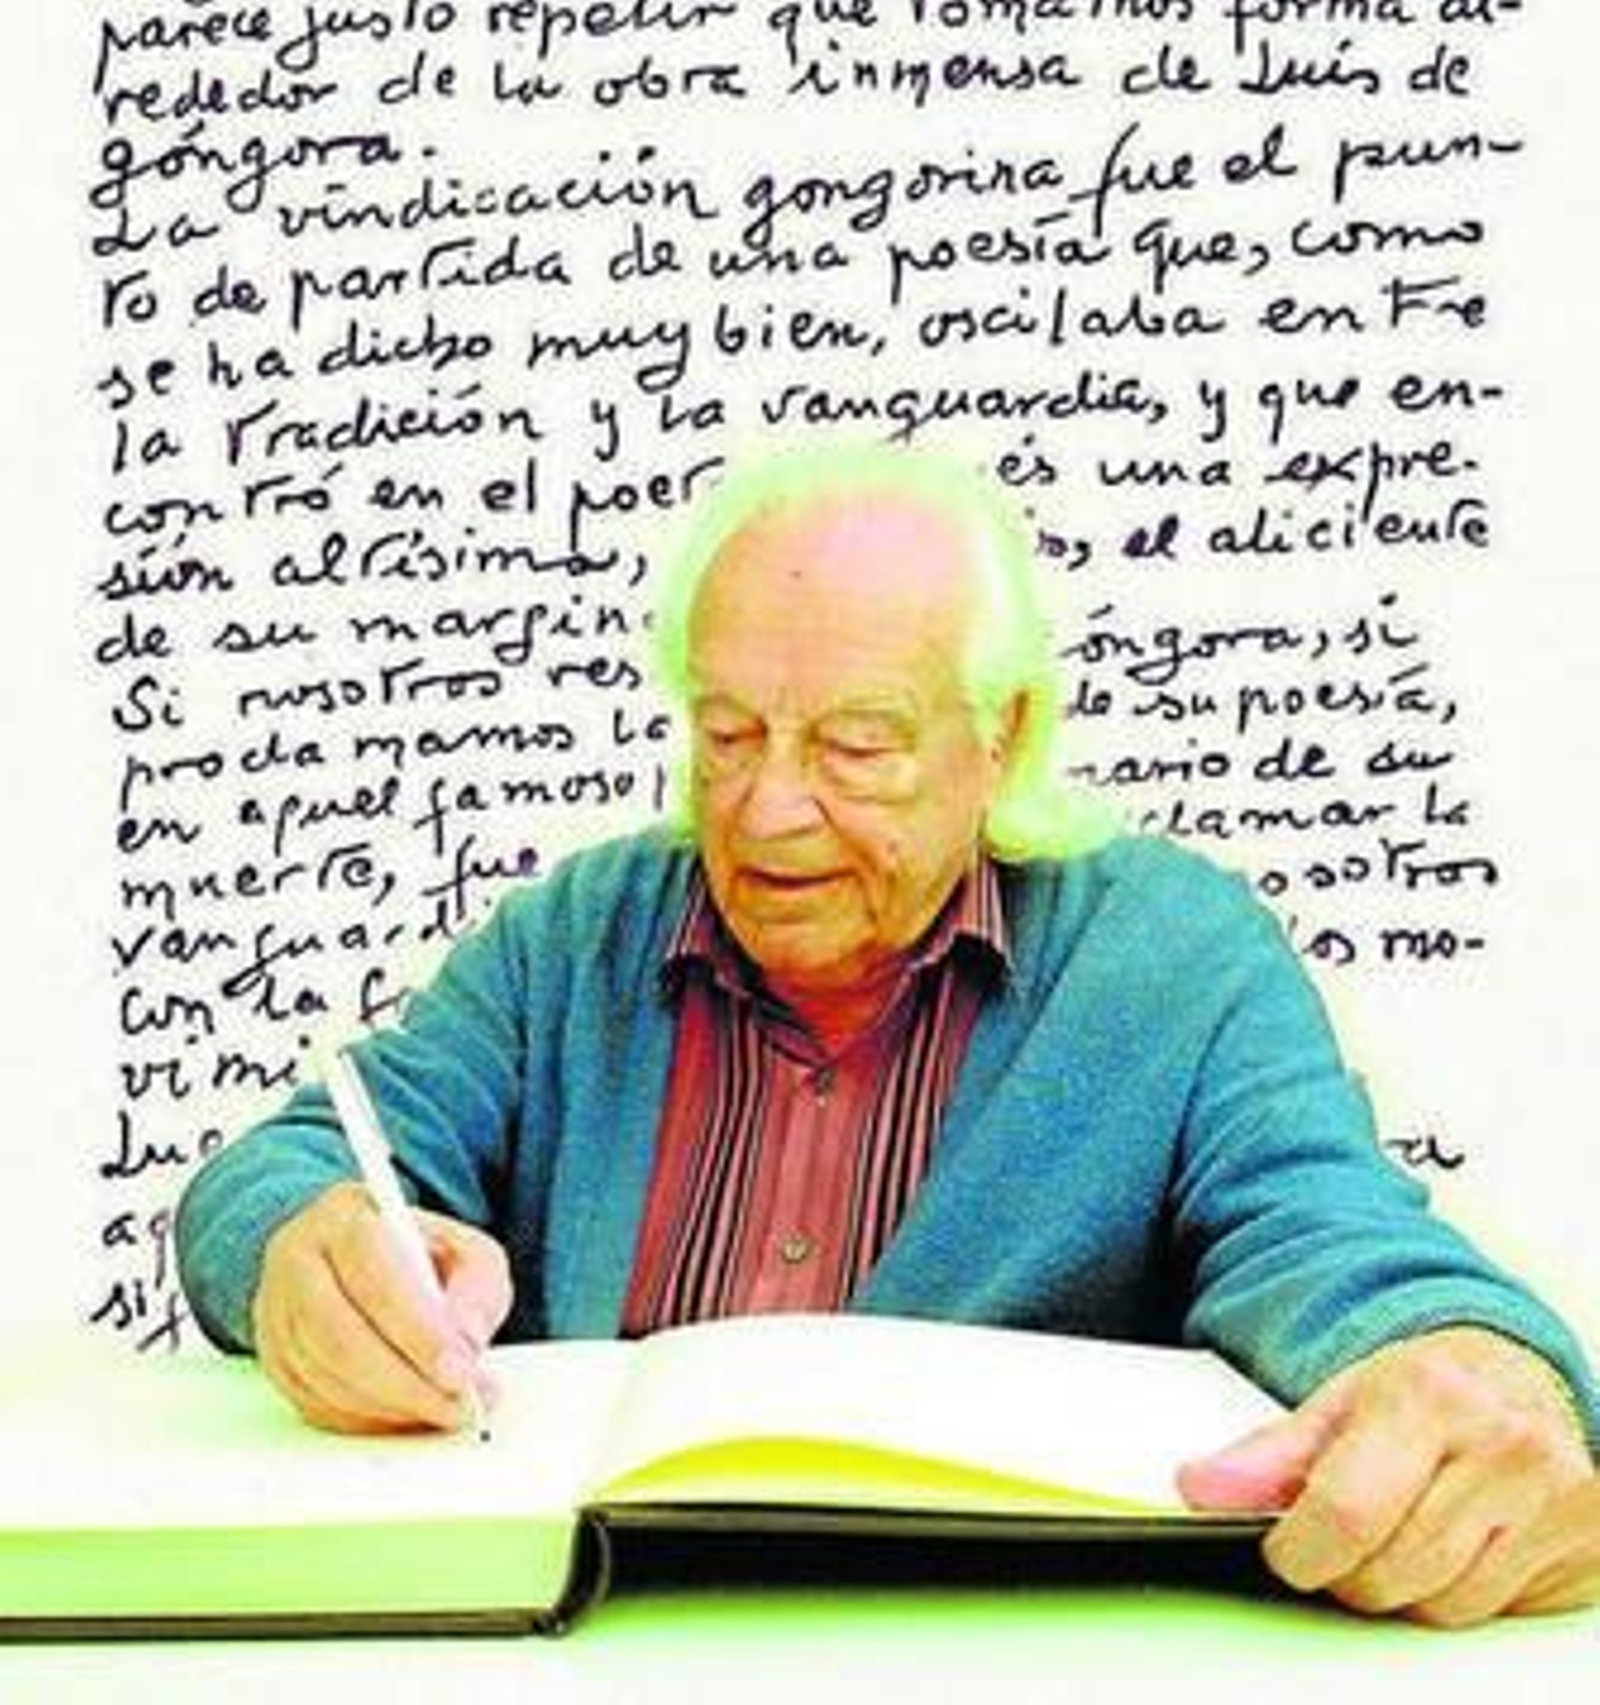 parece justo repetir que tomamos forma al-
rededor de la obra inmensa de Luis de
góngora.
La vindicación gongorina fue el pun-
to de partida de una poesía que, como
se ha dicho muy bien, oscilaba entre
la tradición y la vanguardia, y que en-
contró en el poet és una expre-
sión altísima, s, el aliciente
de su margin óngora, si
Si nosotros res de su poesía,
proclamamos la nario de su
en aquel famoso clamar la
muerte, fue osotros
vanguard los mo-
con la f
vimi
Lue a
aq
si f